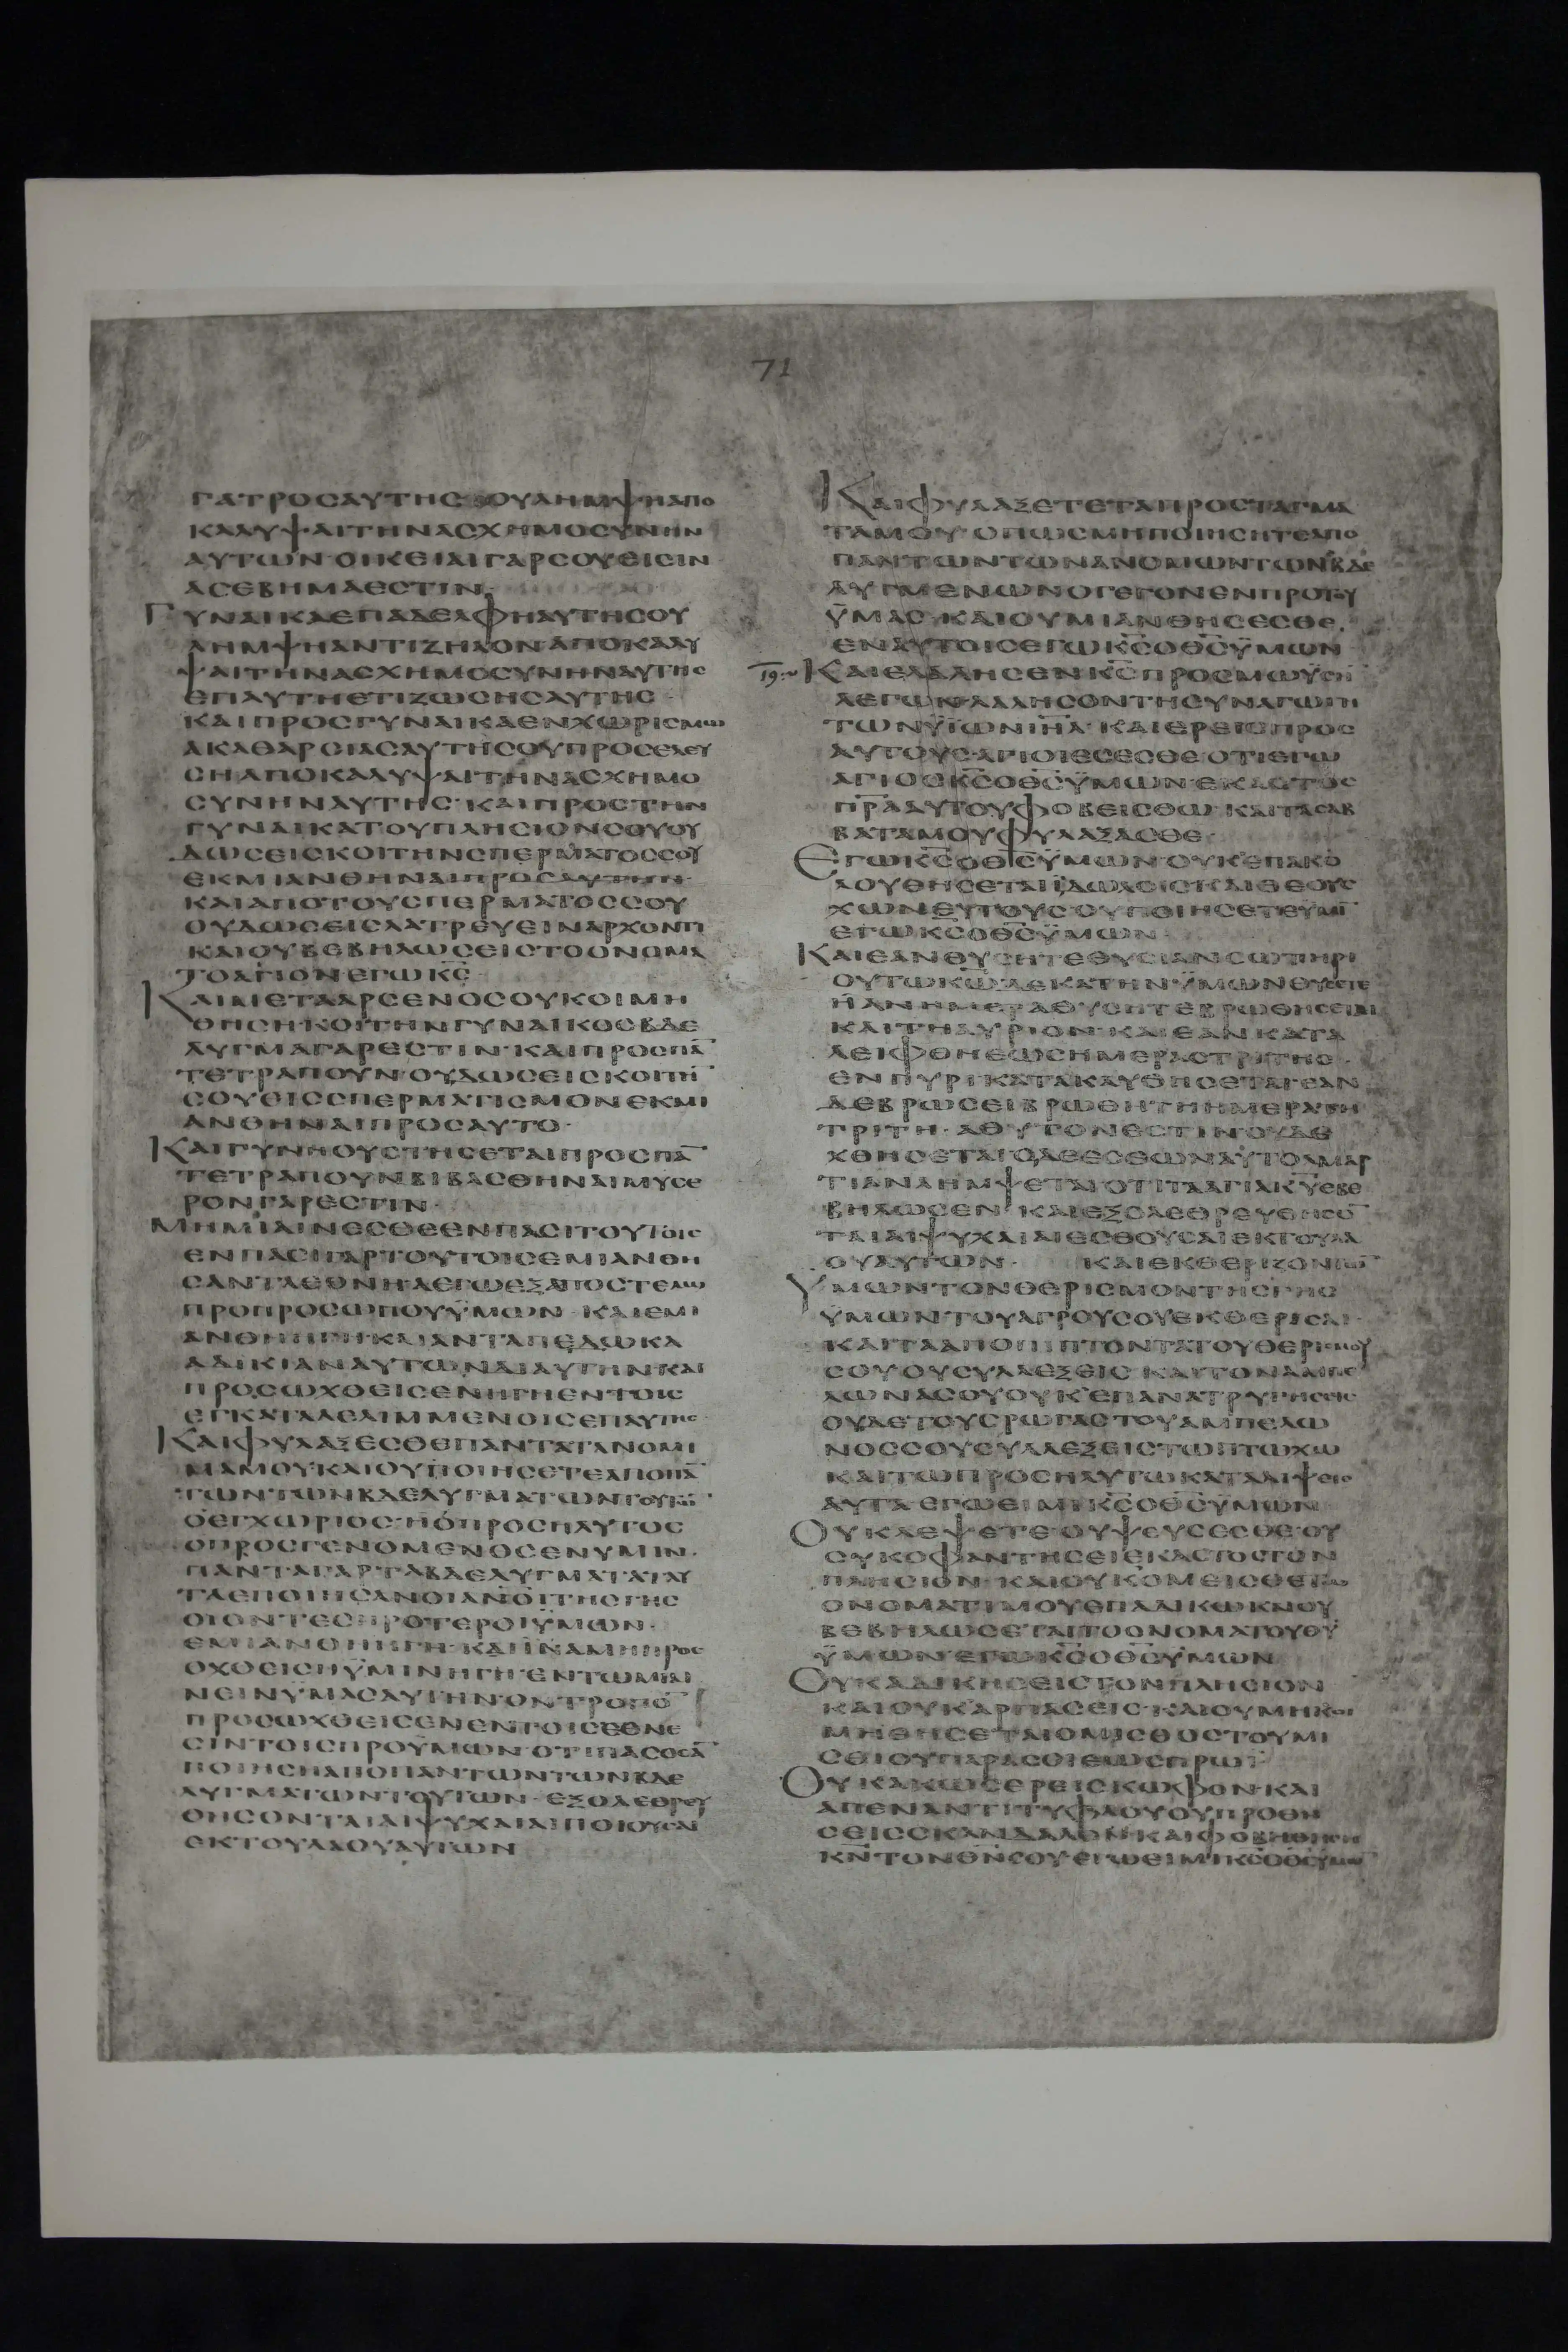 71
ΓΑΤΡΟCΑΥΤΗC ΟΥΛΗΜΨΗΑΠΟ
ΚΑΛΥΨΑΙΤΗΝΑCΧΗΜΟCΥΝΗΝ
ΑΥΤΩΝ·ΟΙΚΕΙΑΙΓΑΡCΟΥΕΙCΙΝ
ΑCΕΒΗΜΑΕCΤΙΝ·
ΓΥΝΑΙΚΑΕΠΑΔΕΛΦΗΑΥΤΗCΟΥ
ΛΗΜΨΗΑΝΤΙΖΗΛΟΝΑΠΟΚΑΛΥ
ΨΑΙΤΗΝΑCΧΗΜΟCΥΝΗΝΑΥΤΗC
ΕΠΑΥΤΗΕΤΙΖΩCΗCΑΥΤΗC·
ΚΑΙΠΡΟCΓΥΝΑΙΚΑΕΝΧΩΡΙCΜΩ
ΑΚΑΘΑΡCΙΑCΑΥΤΗCΟΥΠΡΟCΕΛΕΥ
CΗΑΠΟΚΑΛΥΨΑΙΤΗΝΑCΧΗΜΟ
CΥΝΗΝΑΥΤΗC·ΚΑΙΠΡΟCΤΗΝ
ΓΥΝΑΙΚΑΤΟΥΠΛΗCΙΟΝCΟΥΟΥ
ΔΩCΕΙCΚΟΙΤΗΝCΠΕΡΜΑΤΟCCΟΥ
ΕΚΜΙΑΝΘΗΝΑΙΠΡΟCΑΥΤΗΝ·
ΚΑΙΑΠΟΤΟΥCΠΕΡΜΑΤΟCCΟΥ
ΟΥΔΩCΕΙCΛΑΤΡΕΥΕΙΝΑΡΧΟΝΤΙ
ΚΑΙΟΥΒΕΒΗΛΩCΕΙCΤΟΟΝΟΜΑ
ΤΟΑΓΙΟΝΕΓΩΚ̅C̅·
ΚΑΙΜΕΤΑΑΡCΕΝΟCΟΥΚΟΙΜΗ
ΘΗCΗ·ΚΟΙΤΗΝΓΥΝΑΙΚΟCΒΔΕ
ΛΥΓΜΑΓΑΡΕCΤΙΝ·ΚΑΙΠΡΟCΠΑ̅
ΤΕΤΡΑΠΟΥΝΟΥΔΩCΕΙCΚΟΙΤΗ̅
CΟΥΕΙCCΠΕΡΜΑΤΙCΜΟΝΕΚΜΙ
ΑΝΘΗΝΑΙΠΡΟCΑΥΤΟ·
ΚΑΙΓΥΝΗΟΥCΤΗCΕΤΑΙΠΡΟCΠΑ̅
ΤΕΤΡΑΠΟΥΝΒΙΒΑCΘΗΝΑΙΜΥCΕ
ΡΟΝΓΑΡΕCΤΙΝ·
ΜΗΜΙΑΙΝΕCΘΕΕΝΠΑCΙΤΟΥΤΟΙC
ΕΝΠΑCΙΓΑΡΤΟΥΤΟΙCΕΜΙΑΝΘΗ
CΑΝΤΑΕΘΝΗΑΕΓΩΕΞΑΠΟCΤΕΛΩ
ΠΡΟΠΡΟCΩΠΟΥΫΜΩΝ·ΚΑΙΕΜΙ
ΑΝΘΗΗΓΗ·ΚΑΙΑΝΤΑΠΕΔΩΚΑ
ΑΔΙΚΙΑΝΑΥΤΩΝΔΙΑΥΤΗΝΚΑΙ
ΠΡΟCΩΧΘΕΙCΕΝΗΓΗΕΝΤΟΙC
ΕΓΚΑΤΑΛΕΛΙΜΜΕΝΟΙCΕΠΑΥΤΗC·
ΚΑΙΦΥΛΑΞΕCΘΕΠΑΝΤΑΤΑΝΟΜΙ
ΜΑΜΟΥ·ΚΑΙΟΥΠΟΙΗCΕΤΕΑΠΟΠΑ̅
ΤΩΝΤΩΝΒΔΕΛΥΓΜΑΤΩΝΤΟΥΤΩ̅·
ΟΕΓΧΩΡΙΟC·ΗΟΠΡΟCΗΛΥΤΟC
ΟΠΡΟCΓΕΝΟΜΕΝΟCΕΝΥΜΙΝ·
ΠΑΝΤΑΓΑΡΤΑΒΔΕΛΥΓΜΑΤΑΤΑΥ
ΤΑΕΠΟΙΗCΑΝΟΙΑΝΟΙΤΗCΓΗC
ΟΙΟΝΤΕCΠΡΟΤΕΡΟΙΫΜΩΝ·
ΕΜΙΑΝΘΗΗΓΗ·ΚΑΙΙΝΑΜΗΠΡΟC
ΟΧΘΕΙCΗΫΜΙΝΗΓΗ·ΕΝΤΩΜΙΑΙ
ΝΕΙΝΥΜΑCΑΥΤΗΝ·ΟΝΤΡΟΠΟ̅
ΠΡΟCΩΧΘΕΙCΕΝΕΝΤΟΙCΕΘΝΕ
CΙΝΤΟΙCΠΡΟΫΜΩΝ·ΟΤΙΠΑCΟCΑ̅
ΠΟΙΗCΗΑΠΟΠΑΝΤΩΝΤΩΝΒΔΕ
ΛΥΓΜΑΤΩΝΤΟΥΤΩΝ·ΕΞΟΛΕΘΡΕΥ
ΘΗCΟΝΤΑΙΑΙΨΥΧΑΙΑΙΠΟΙΟΥCΑΙ
ΕΚΤΟΥΛΑΟΥΑΥΤΩΝ
ΚΑΙΦΥΛΑΞΕΤΕΤΑΠΡΟCΤΑΓΜΑ
ΤΑΜΟΥ·ΟΠΩCΜΗΠΟΙΗCΗΤΕΑΠΟ
ΠΑΝΤΩΝΤΩΝΑΝΟΜΙΩΝΤΩΝΒΔΕ
ΛΥΓΜΕΝΩΝΟΓΕΓΟΝΕΝΠΡΟΤΟΥ
ΫΜΑC·ΚΑΙΟΥΜΙΑΝΘΗCΕCΘΕ·
ΕΝΑΥΤΟΙCΕΓΩΚ̅C̅ΟΘ̅C̅ΫΜΩΝ
19: ΚΑΙΕΛΑΛΗCΕΝΚ̅C̅ΠΡΟCΜΩΥCΗ̅
ΛΕΓΩΝ·ΛΑΛΗCΟΝΤΗCΥΝΑΓΩΓΗ
ΤΩΝΫΙΩΝΙ̅Η̅Λ̅·ΚΑΙΕΡΕΙCΠΡΟC
ΑΥΤΟΥC·ΑΓΙΟΙΕCΕCΘΕ·ΟΤΙΕΓΩ
ΑΓΙΟCΚ̅C̅ΟΘ̅C̅ΫΜΩΝ·ΕΚΑCΤΟC
Π̅Ρ̅Α̅ΑΥΤΟΥΦΟΒΕΙCΘΩ·ΚΑΙΤΑCΑΒ
ΒΑΤΑΜΟΥΦΥΛΑΞΑCΘΕ·
ΕΓΩΚ̅C̅ΟΘ̅C̅ΫΜΩΝ·ΟΥΚΕΠΑΚΟ
ΛΟΥΘΗCΕΤΑΙΙΔΩΛΟΙC·ΚΑΙΘΕΟΥC
ΧΩΝΕΥΤΟΥCΟΥΠΟΙΗCΕΤΕΥΜΙ̅
ΕΓΩΚ̅C̅ΟΘ̅C̅ΫΜΩΝ·
ΚΑΙΕΑΝΘΥCΗΤΕΘΥCΙΑΝCΩΤΗΡΙ
ΟΥΤΩΚ̅Ω̅ΔΕΚΤΗΝΫΜΩΝΘΥCΕΤΕ
ΗΑΝΗΜΕΡΑΘΥCΗΤΕΒΡΩΘΗCΕΤΑΙ
ΚΑΙΤΗΑΥΡΙΟΝ·ΚΑΙΕΑΝΚΑΤΑ
ΛΕΙΦΘΗΕΩCΗΜΕΡΑCΤΡΙΤΗC·
ΕΝΠΥΡΙΚΑΤΑΚΑΥΘΗCΕΤΑΙ·ΕΑΝ
ΔΕΒΡΩCΕΙΒΡΩΘΗΤΗΗΜΕΡΑΤΗ
ΤΡΙΤΗ·ΑΘΥΤΟΝΕCΤΙΝΟΥΔΕ
ΧΘΗCΕΤΑΙΟΔΕΕCΘΩΝΑΥΤΟΑΜΑΡ
ΤΙΑΝΛΗΜΨΕΤΑΙΟΤΙΤΑΑΓΙΑΚ̅Υ̅ΕΒΕ
ΒΗΛΩCΕΝ ΚΑΙΕΞΟΛΕΘΡΕΥΘΗCΟ̅
ΤΑΙΑΙΨΥΧΑΙΑΙΕCΘΟΥCΑΙΕΚΤΟΥΛΑ
ΟΥΑΥΤΩΝ· ΚΑΙΕΚΘΕΡΙΖΟΝΤΩ̅
ΥΜΩΝΤΟΝΘΕΡΙCΜΟΝΤΗCΓΗC
ΫΜΩΝΤΟΥΑΓΡΟΥCΟΥΕΚΘΕΡΙCΑΙ·
ΚΑΙΤΑΑΠΟΠΙΠΤΟΝΤΑΤΟΥΘΕΡΙCΜΟΥ
CΟΥΟΥCΥΛΛΕΞΕΙC·ΚΑΙΤΟΝΑΜΠΕ
ΛΩΝΑCΟΥΟΥΚΕΠΑΝΑΤΡΥΓΗCΕΙC
ΟΥΔΕΤΟΥCΡΩΓΑCΤΟΥΑΜΠΕΛΩ
ΝΟCCΟΥCΥΛΛΕΞΕΙCΤΩΠΤΩΧΩ
ΚΑΙΤΩΠΡΟCΗΛΥΤΩΚΑΤΑΛΙΨΕΙC
ΑΥΤΑ·ΕΓΩΕΙΜΙΚ̅C̅ΟΘ̅C̅ΫΜΩΝ
ΟΥΚΛΕΨΕΤΕ·ΟΥΨΕΥCΕCΘΕ·ΟΥ
CΥΚΟΦΑΝΤΗCΕΙΕΚΑCΤΟCΤΟΝ
ΠΛΗCΙΟΝ·ΚΑΙΟΥΚΟΜΕΙCΘΕΤΩ
ΟΝΟΜΑΤΙΜΟΥΕΠΑΔΙΚΩΚΑΙΟΥ
ΒΕΒΗΛΩCΕΤΑΙΤΟΟΝΟΜΑΤΟΥΘ̅Υ̅
ΫΜΩΝ·ΕΓΩΚ̅C̅ΟΘ̅C̅ΫΜΩΝ
ΟΥΚΑΔΙΚΗCΕΙCΤΟΝΠΛΗCΙΟΝ
ΚΑΙΟΥΚΑΡΠΑCΕΙC·ΚΑΙΟΥΜΗΚΟΙ
ΜΗΘΗCΕΤΑΙΟΜΙCΘΟCΤΟΥΜΙ
CΘΙΟΥΠΑΡΑCΟΙΕΩCΠΡΩΙ·
ΟΥΚΑΚΩCΕΡΕΙCΚΩΦΟΝ·ΚΑΙ
ΑΠΕΝΑΝΤΙΤΥΦΛΟΥΟΥΠΡΟΘΗ
CΕΙCCΚΑΝΔΑΛΟΝ·ΚΑΙΦΟΒΗΘΗCΗ
Κ̅Ν̅ΤΟΝΘ̅Ν̅CΟΥ·ΕΓΩΕΙΜΙΚ̅C̅ΟΘ̅C̅ΫΜΩ̅